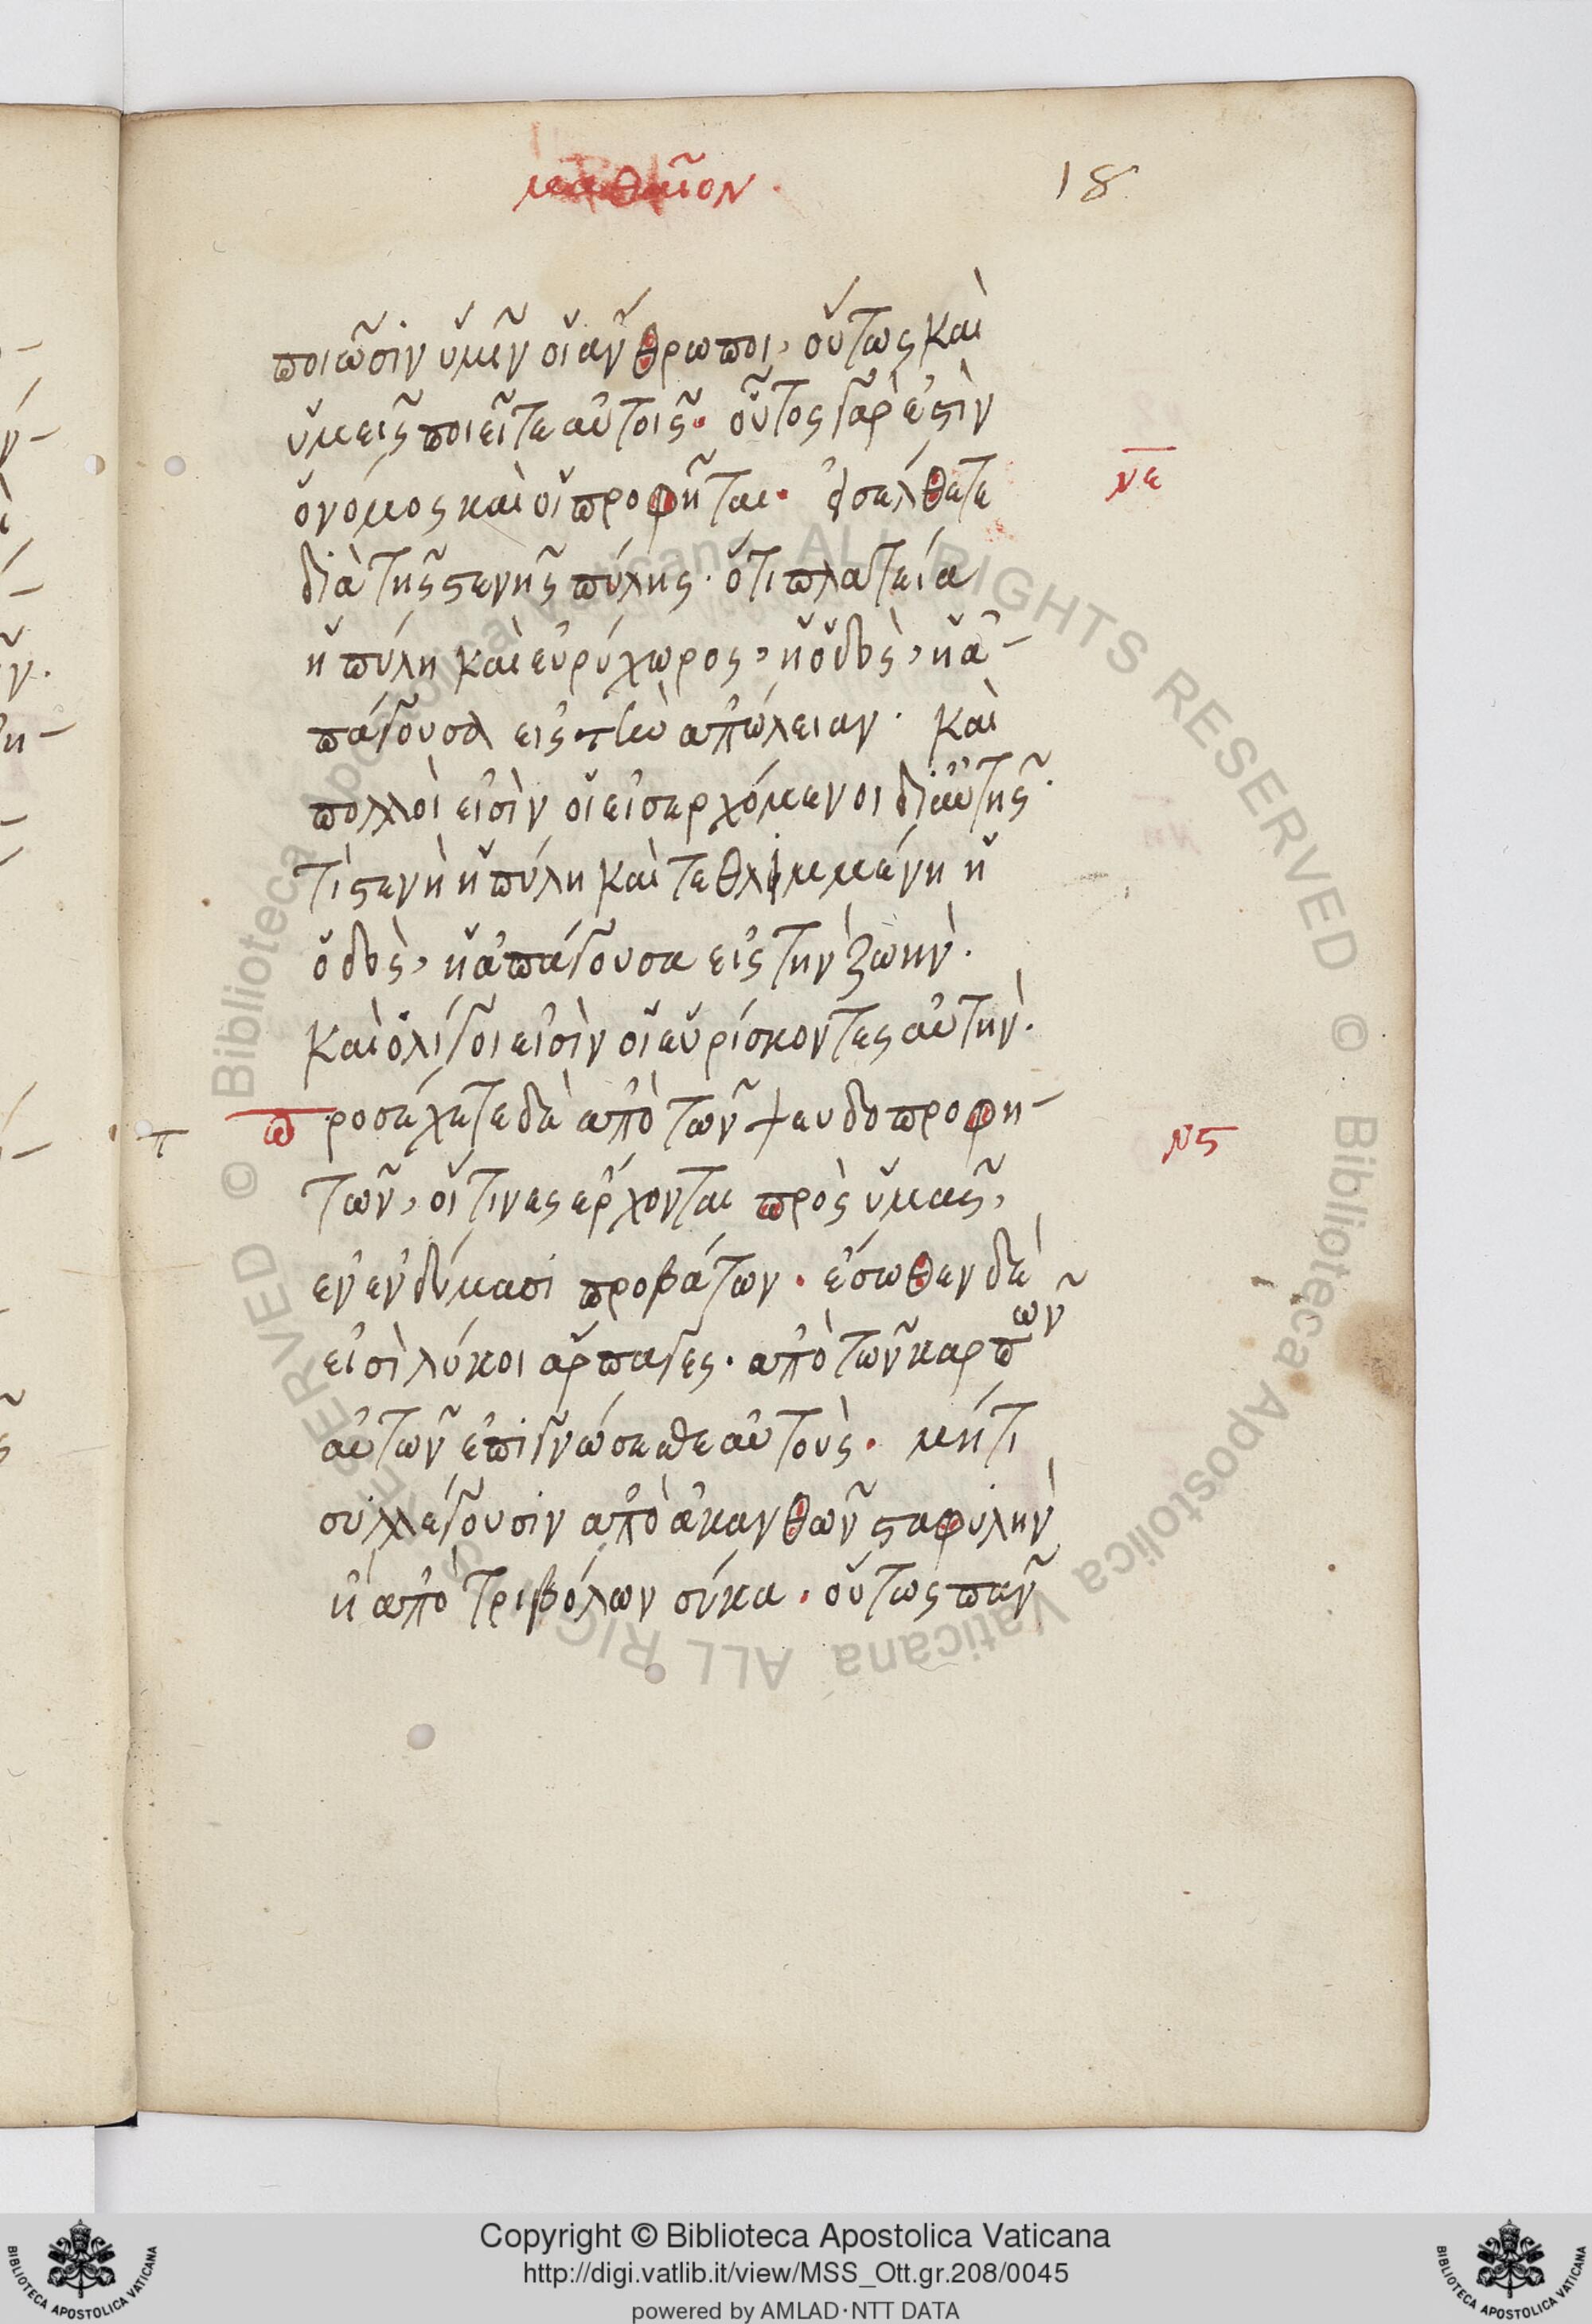 ματθαῖον.
18
ποιῶσιν ὑμῖν οἱ ἄνθρωποι, οὕτως καὶ
ὑμεῖς ποιεῖτε αὐτοῖς. οὗτος γὰρ ἐστὶν
ὁ νόμος καὶ οἱ προφῆται. εἰσέλθετε
νε
διὰ τῆς στενῆς πύλης. ὅτι πλατεία
ἡ πύλη καὶ εὐρύχωρος, ἡ ὁδὸς, ἡ ἀ-
πάγουσα εἰς τὴν ἀπώλειαν. καὶ
πολλοὶ εἰσὶν οἱ εἰσερχόμενοι δι αὐτῆς.
τί στενὴ ἡ πύλη καὶ τεθλιμμένη ἡ
ὁδὸς, ἡ ἀπάγουσα εἰς τὴν ζωὴν.
καὶ ὀλίγοι εἰσὶν οἱ εὑρίσκοντες αὐτὴν.
προσέχετε δὲ ἀπὸ τῶν ψευδοπροφη-
νϛ
τῶν, οἵτινες ἔρχονται πρὸς ὑμᾶς,
ἐν ἐνδύμασι προβάτων. ἔσωθεν δέ
εἰσὶ λύκοι ἅρπαγες. ἀπὸ τῶν καρπῶν
αὐτῶν ἐπιγνώσεσθε αὐτοὺς. μήτι
συλλέγουσιν ἀπὸ ἀκανθῶν σταφυλὴν
ἢ ἀπὸ τριβόλων σύκα. οὕτως πᾶν
Copyright © Biblioteca Apostolica Vaticana
http://digi.vatlib.it/view/MSS_Ott.gr.208/0045
powered by AMLAD·NTT DATA